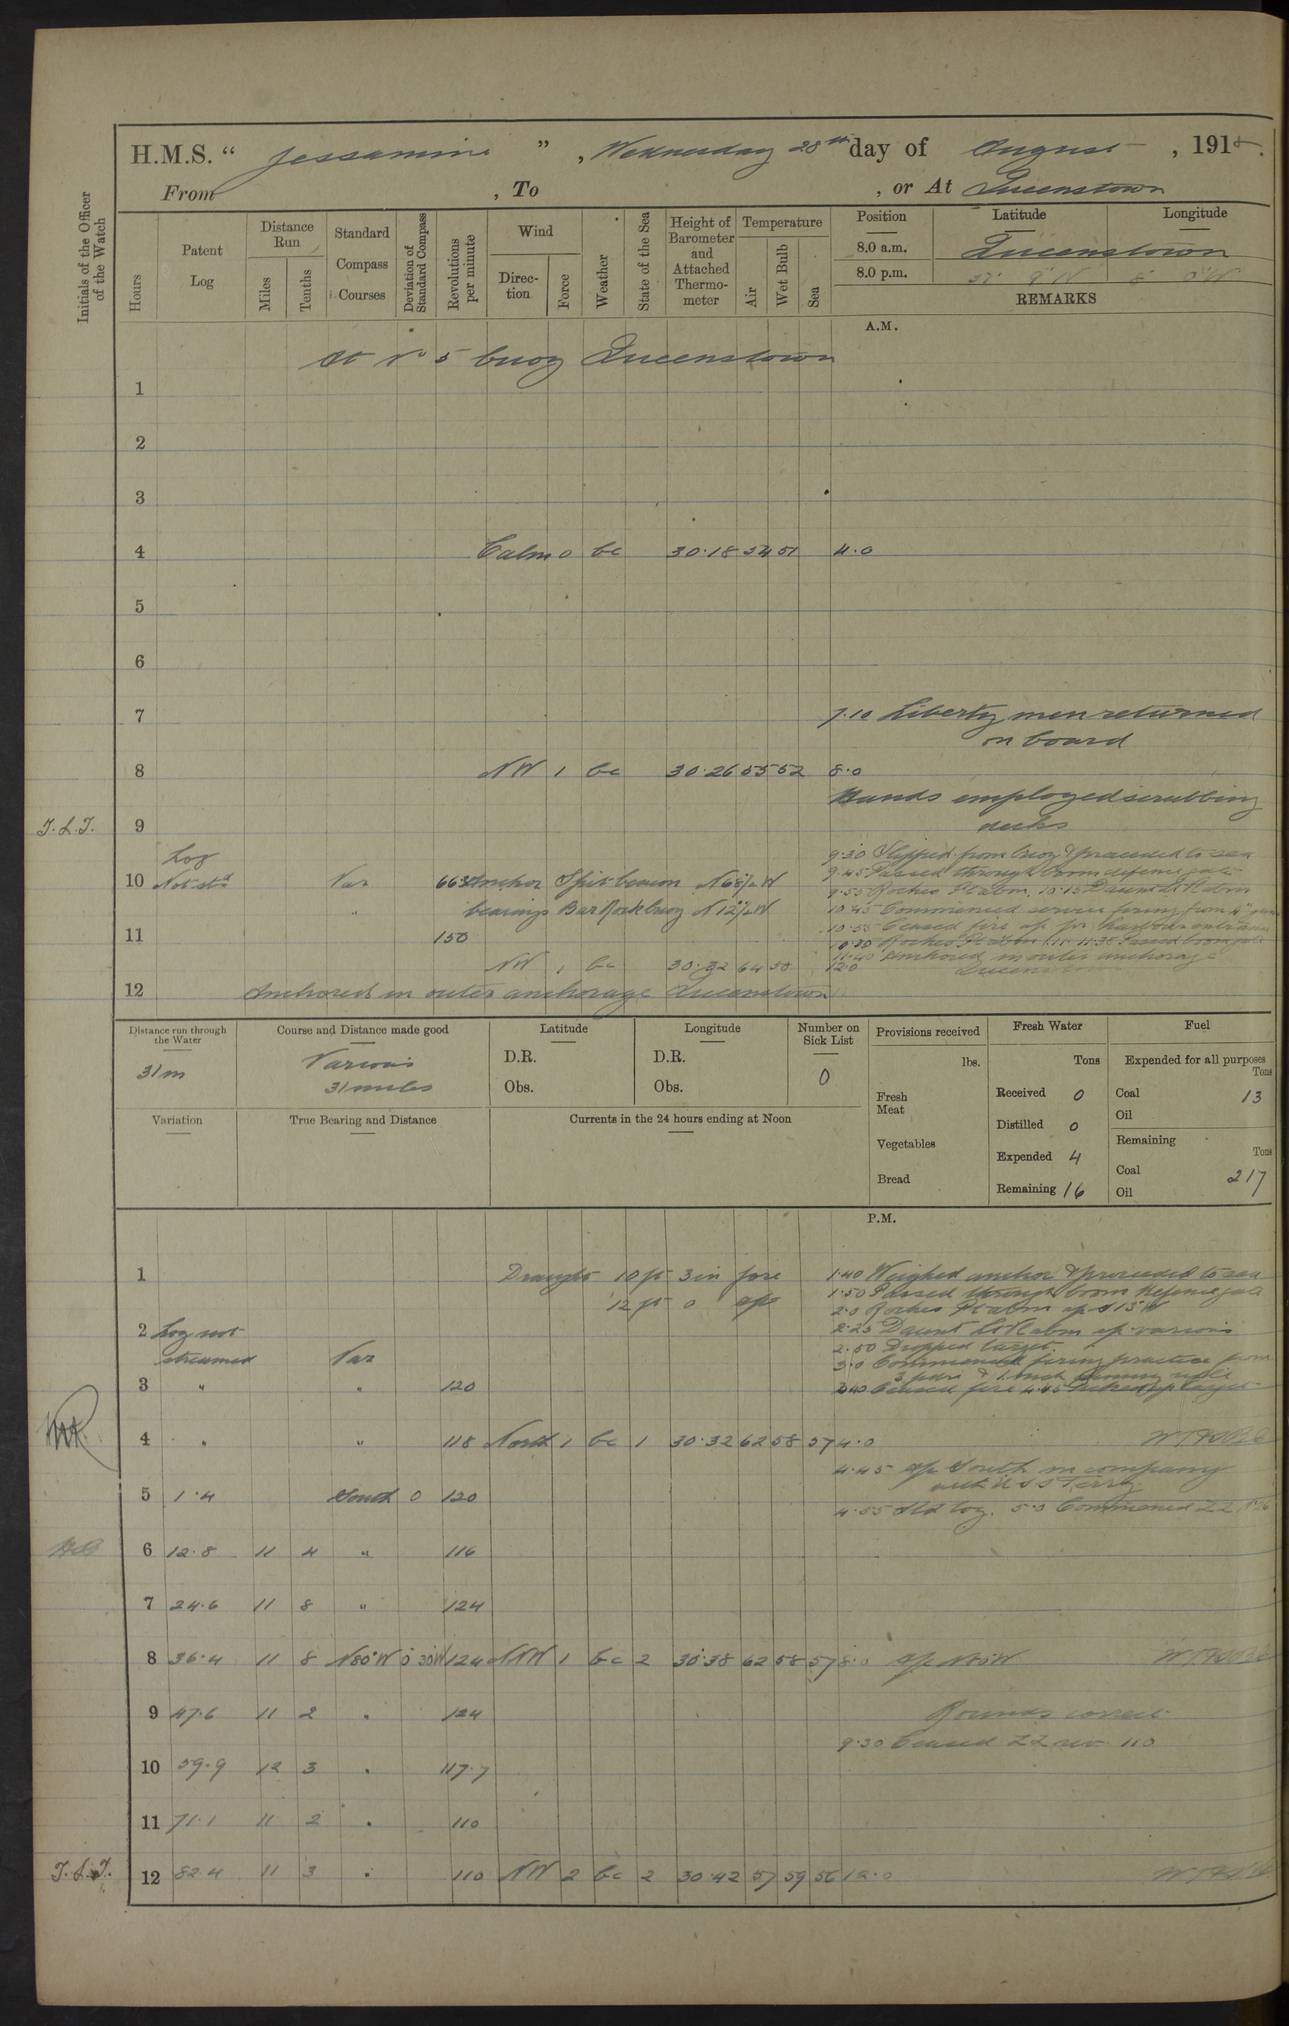 H.M.S. “ Jessamine ” , Wednesday 28th day of August , 1918.
From , To , or At Queenstown
Initials of the Officer of the Watch
Hours
Patent Log
Distance Run
Miles
Tenths
Standard Compass Courses
Deviation of Standard Compass
Revolutions per minute
Wind
Direction
Force
Weather
State of the Sea
Height of Barometer and Attached Thermometer
Temperature
Air
Wet Bulb
Sea
Position Latitude Longitude
8.0 a.m. Queenstown
8.0 p.m.
REMARKS
A.M.
At No 5 buoy Queenstown
1
2
3
4 Calm 0 bc 30.18 54 51 4.0
5
6
7 7.10 Liberty men returned
on board
8 NW 1 bc 30.26 55 52 8.0
Hands employed scrubbing
T.L.J. 9 decks
Log 9.30 Slipped from buoy & proceeded to sea
10 Not std Var Anchor Spit beacon 9.45 Passed through boom defence gate
9.55 Roches Pt abm. 10.15 Daunt Lt Vl abm
" bearings Bar Rock buoy 10.45 Commenced firing from 4"
10.55 Ceased fire
11 150 11.35 Passed boom gate
11.40 Anchored in outer anchorage
NW 1 bc 30.32 64 58 12.0 Queenstown
12 Anchored in outer anchorage Queenstown
Distance run through the Water
31 m
Course and Distance made good
Various
31 miles
Latitude
D.R.
Obs.
Longitude
D.R.
Obs.
Number on Sick List
0
Provisions received
lbs.
Fresh Meat
Vegetables
Bread
Fresh Water
Tons
Received 0
Distilled 0
Expended 4
Remaining 16
Fuel
Expended for all purposes
Tons
Coal 13
Oil
Remaining
Tons
Coal 217
Oil
Variation
True Bearing and Distance
Currents in the 24 hours ending at Noon
P.M.
1 Draught 10 ft 3 in fore 1.40 Weighed anchor & proceeded to sea
12 ft 0 aft 1.50 Passed through boom defence gate
2.0 Roches Pt abm
2 Log not 2.25 Daunt Lt Vl abm
2.50 Dropped target.
streamed Var 3.0 Commenced firing practice from
3 " " 120 Ceased fire 4.45
4 " " 118 North 1 bc 1 30.32 62 58 57 4.0
4.45 South in company
with USS Terry
5 1.4 South 0 120
4.55 Std log. 5.0 Commenced ZZ
6 12.8 11 4 " 116
7 24.6 11 8 " 124
8 36.4 11 8 N80°W 0°30'W 124 NNW 1 bc 2 30.38 62 58 57 8.0
9 47.6 11 2 " 124 Rounds correct
9.30 Ceased ZZ rev 110
10 59.9 12 3 " 117.7
11 71.1 11 2 " 110
T.L.J. 12 82.4 11 3 " 110 NW 2 bc 2 30.42 57 59 56 12.0